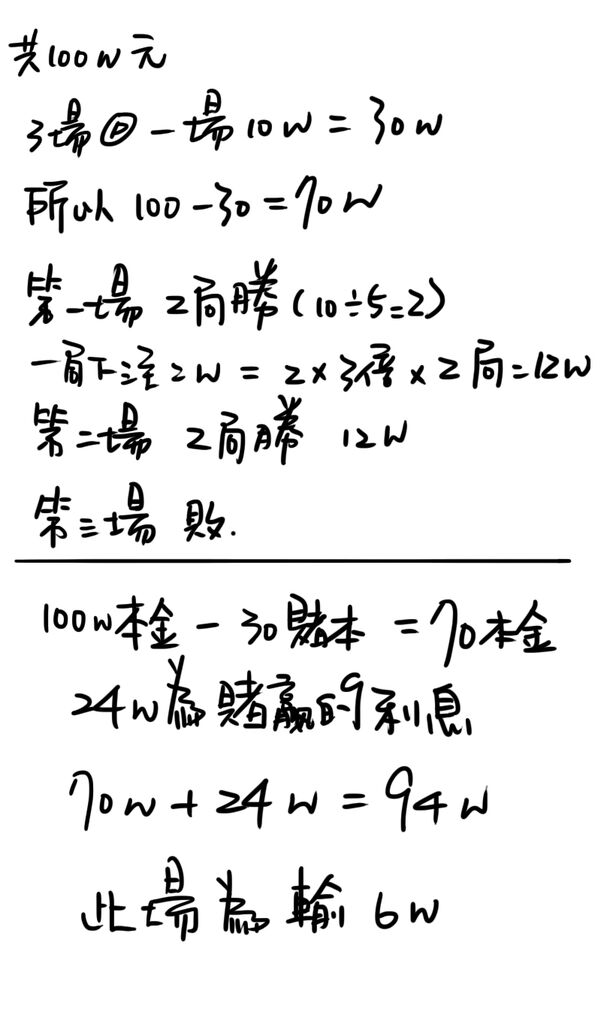 共100w元
3場@一場10w=30w
所以100-30=70w
第一場 2局勝(10÷5=2)
一局下注2w=2×3倍×2局=12w
第二場 2局勝 12w
第三場 敗.
100w本金-30賭本=70本金
24w為賭贏的利息
70w+24w=94w
此場為輸6w